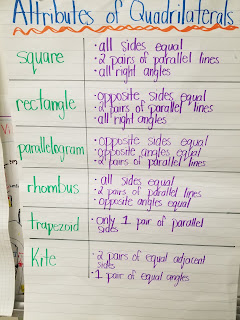 Attributes of Quadrilaterals
square
• all sides equal
• 2 pairs of parallel lines
• all right angles
rectangle
• opposite sides equal
• 2 pairs of parallel lines
• all right angles
parallelogram
• opposite sides equal
• opposite angles equal
• 2 pairs of parallel lines
rhombus
• all sides equal
• 2 pairs of parallel lines
• opposite angles equal
trapezoid
• only 1 pair of parallel
sides
Kite
• 2 pairs of equal adjacent
sides
• 1 pair of equal angles